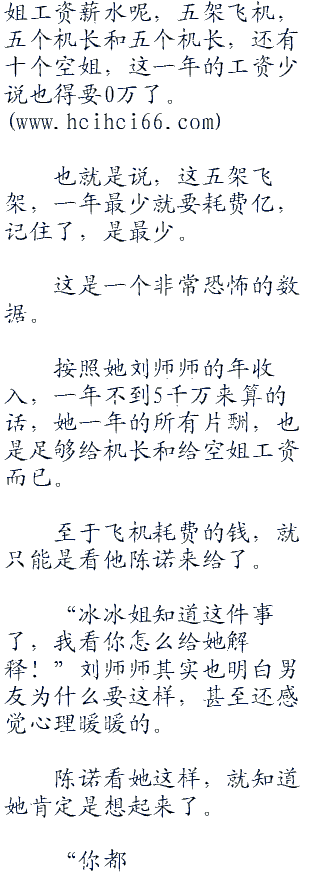 姐工资薪水呢，五架飞机，
五个机长和五个机长，还有
十个空姐，这一年的工资少
说也得要0万了。
(www.hcihci66.com)
也就是说，这五架飞
架，一年最少就要耗费亿，
记住了，是最少。
这是一个非常恐怖的数
据。
按照她刘师师的年收
入，一年不到5千万来算的
话，她一年的所有片酬，也
是足够给机长和给空姐工资
而已。
至于飞机耗费的钱，就
只能是看他陈诺来给了。
“冰冰姐知道这件事
了，我看你怎么给她解
释！”刘师师其实也明白男
友为什么要这样，甚至还感
觉心理暖暖的。
陈诺看她这样，就知道
她肯定是想起来了。
“你都